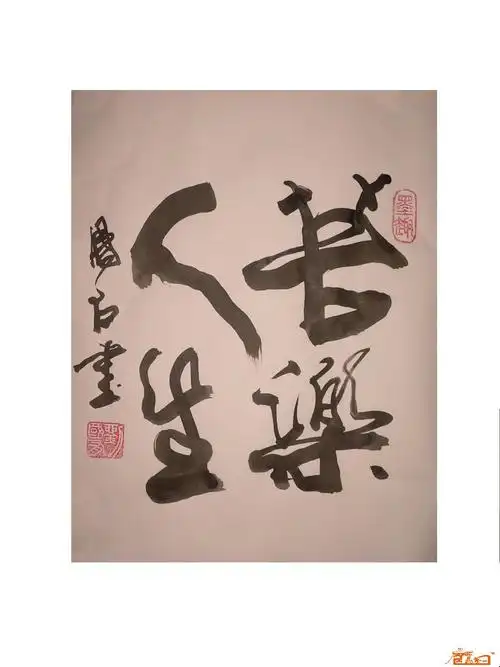 苦樂
人生
國石書